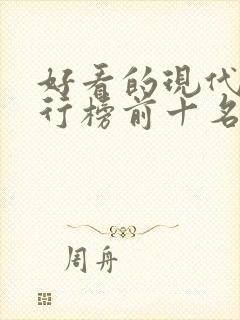 好看的现代
行榜前十名
周舟